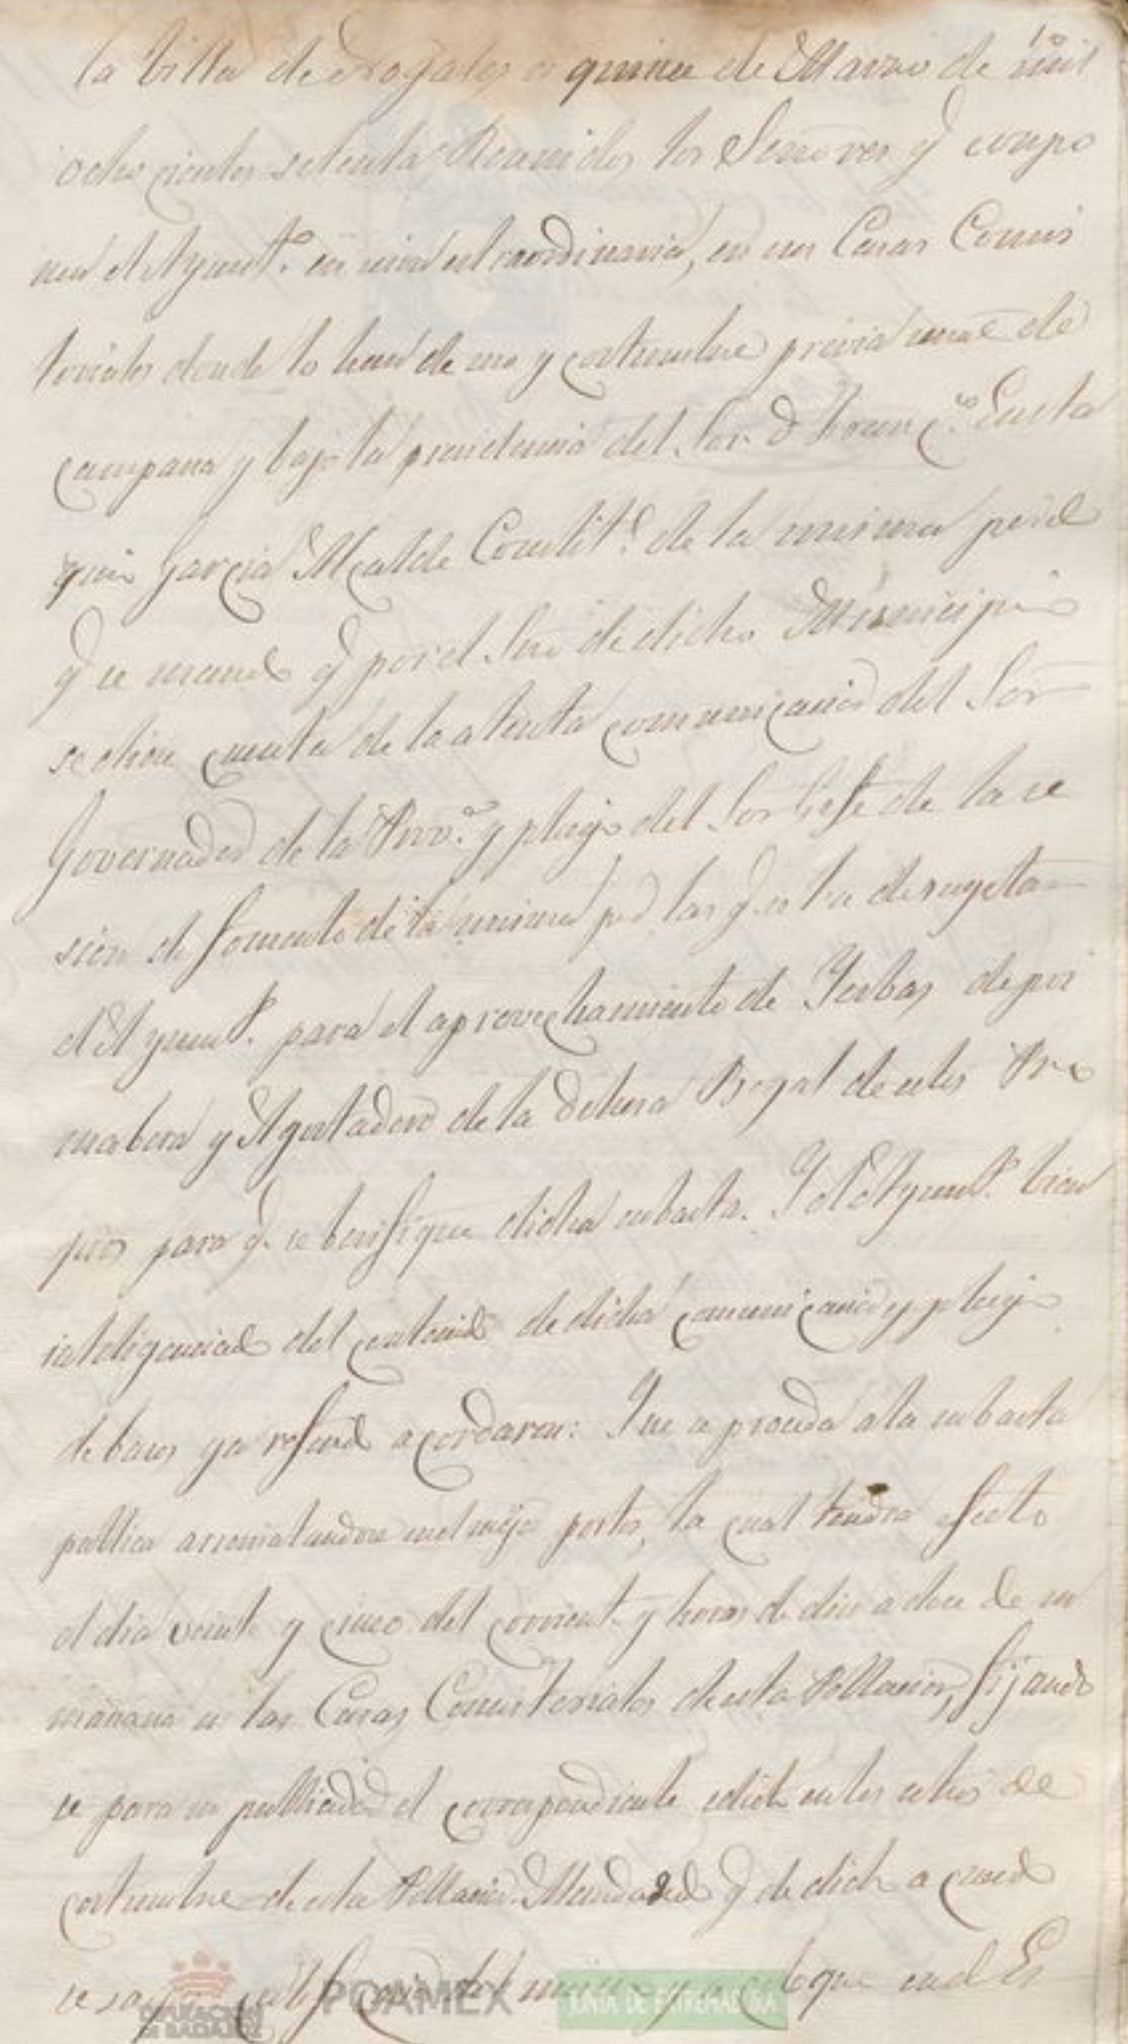 la Villa de Nogales a quince de Marzo de mil
ochocientos setenta Reunidos los Señores q compo
nen el Ayunt.º en sesion extraordinaria, en sus Casas Consis
toriales donde lo han de uso y costumbre previa señal de
campana y bajo la presidencia del Sor. D. Fran.co
Garcia Alcalde Constit.l de la misma por el
q se mandó q por el Srio de dicho Municipio
se diese cuenta de la atenta comunicacion del Sor
Governador de la Prov.a y pliego del Sor Gefe de la se
sion de fomento de la misma por las q se ha de sugetar
el Ayunt.º para el aprovechamiento de Yerbas de pri
mabera y Agostadero de la Dehesa Bogal de estos Pro
pios para q. se berifique dicha subasta. Y el Ayunt.º bien
inteligenciado del contenido de dicha comunicacion y pliego
de bases ya referido acordaron: Que se proceda a la subasta
publica arrematandose en el mejor postor, la cual tendra efecto
el dia veinte y cinco del corriente y horas de diez a doce de su
mañana en las Casas Consistoriales de esta Poblacion, fijando
se para su publicidad el correspondiente edicto en los sitios de
costumbre de esta Poblacion. Mandando q de dicho acuerdo
se saque certificacion del mismo y se coloque en el Es
DIPUTACIÓN DE BADAJOZ
POAMEX
JUNTA DE EXTREMADURA